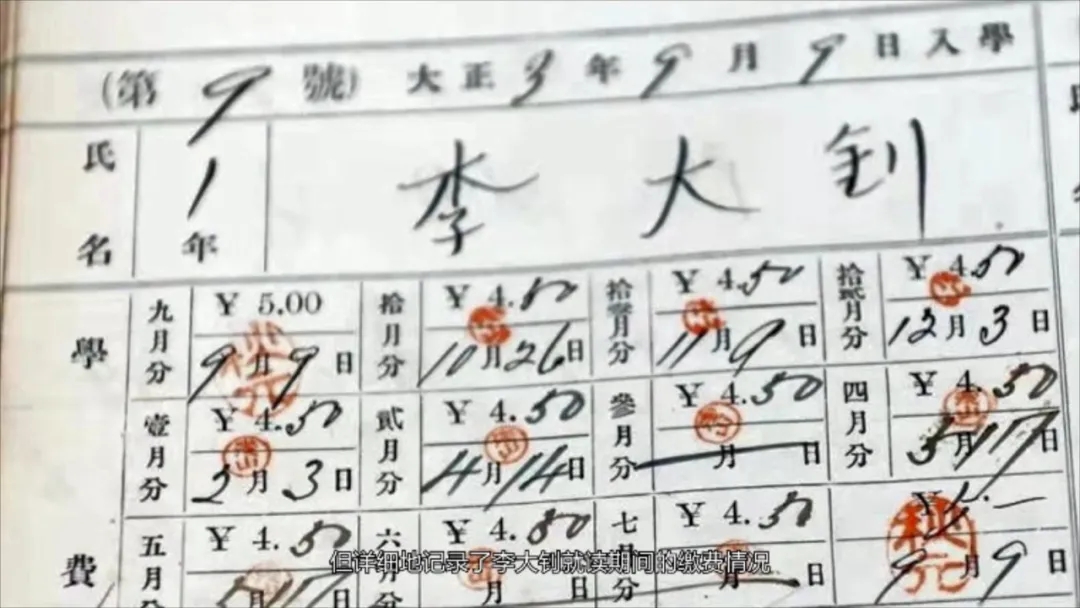 (第 9 號) 大正 3 年 9 月 9 日入學
氏名 1年 李大釗
學費
九月分 ¥ 5.00 9月9日
拾月分 ¥ 4.50 10月26日
拾壹月分 ¥ 4.50 11月9日
拾貳月分 ¥ 4.50 12月3日
壹月分 ¥ 4.50 2月3日
貳月分 ¥ 4.50 4月14日
參月分 ¥ 4.50 月 日
四月分 ¥ 4.50 5月17日
五月 ¥ 4.50
六月 ¥ 4.50 月
七 ¥ 4.50 日
9月9日
但详细地记录了李大钊就读期间的缴费情况